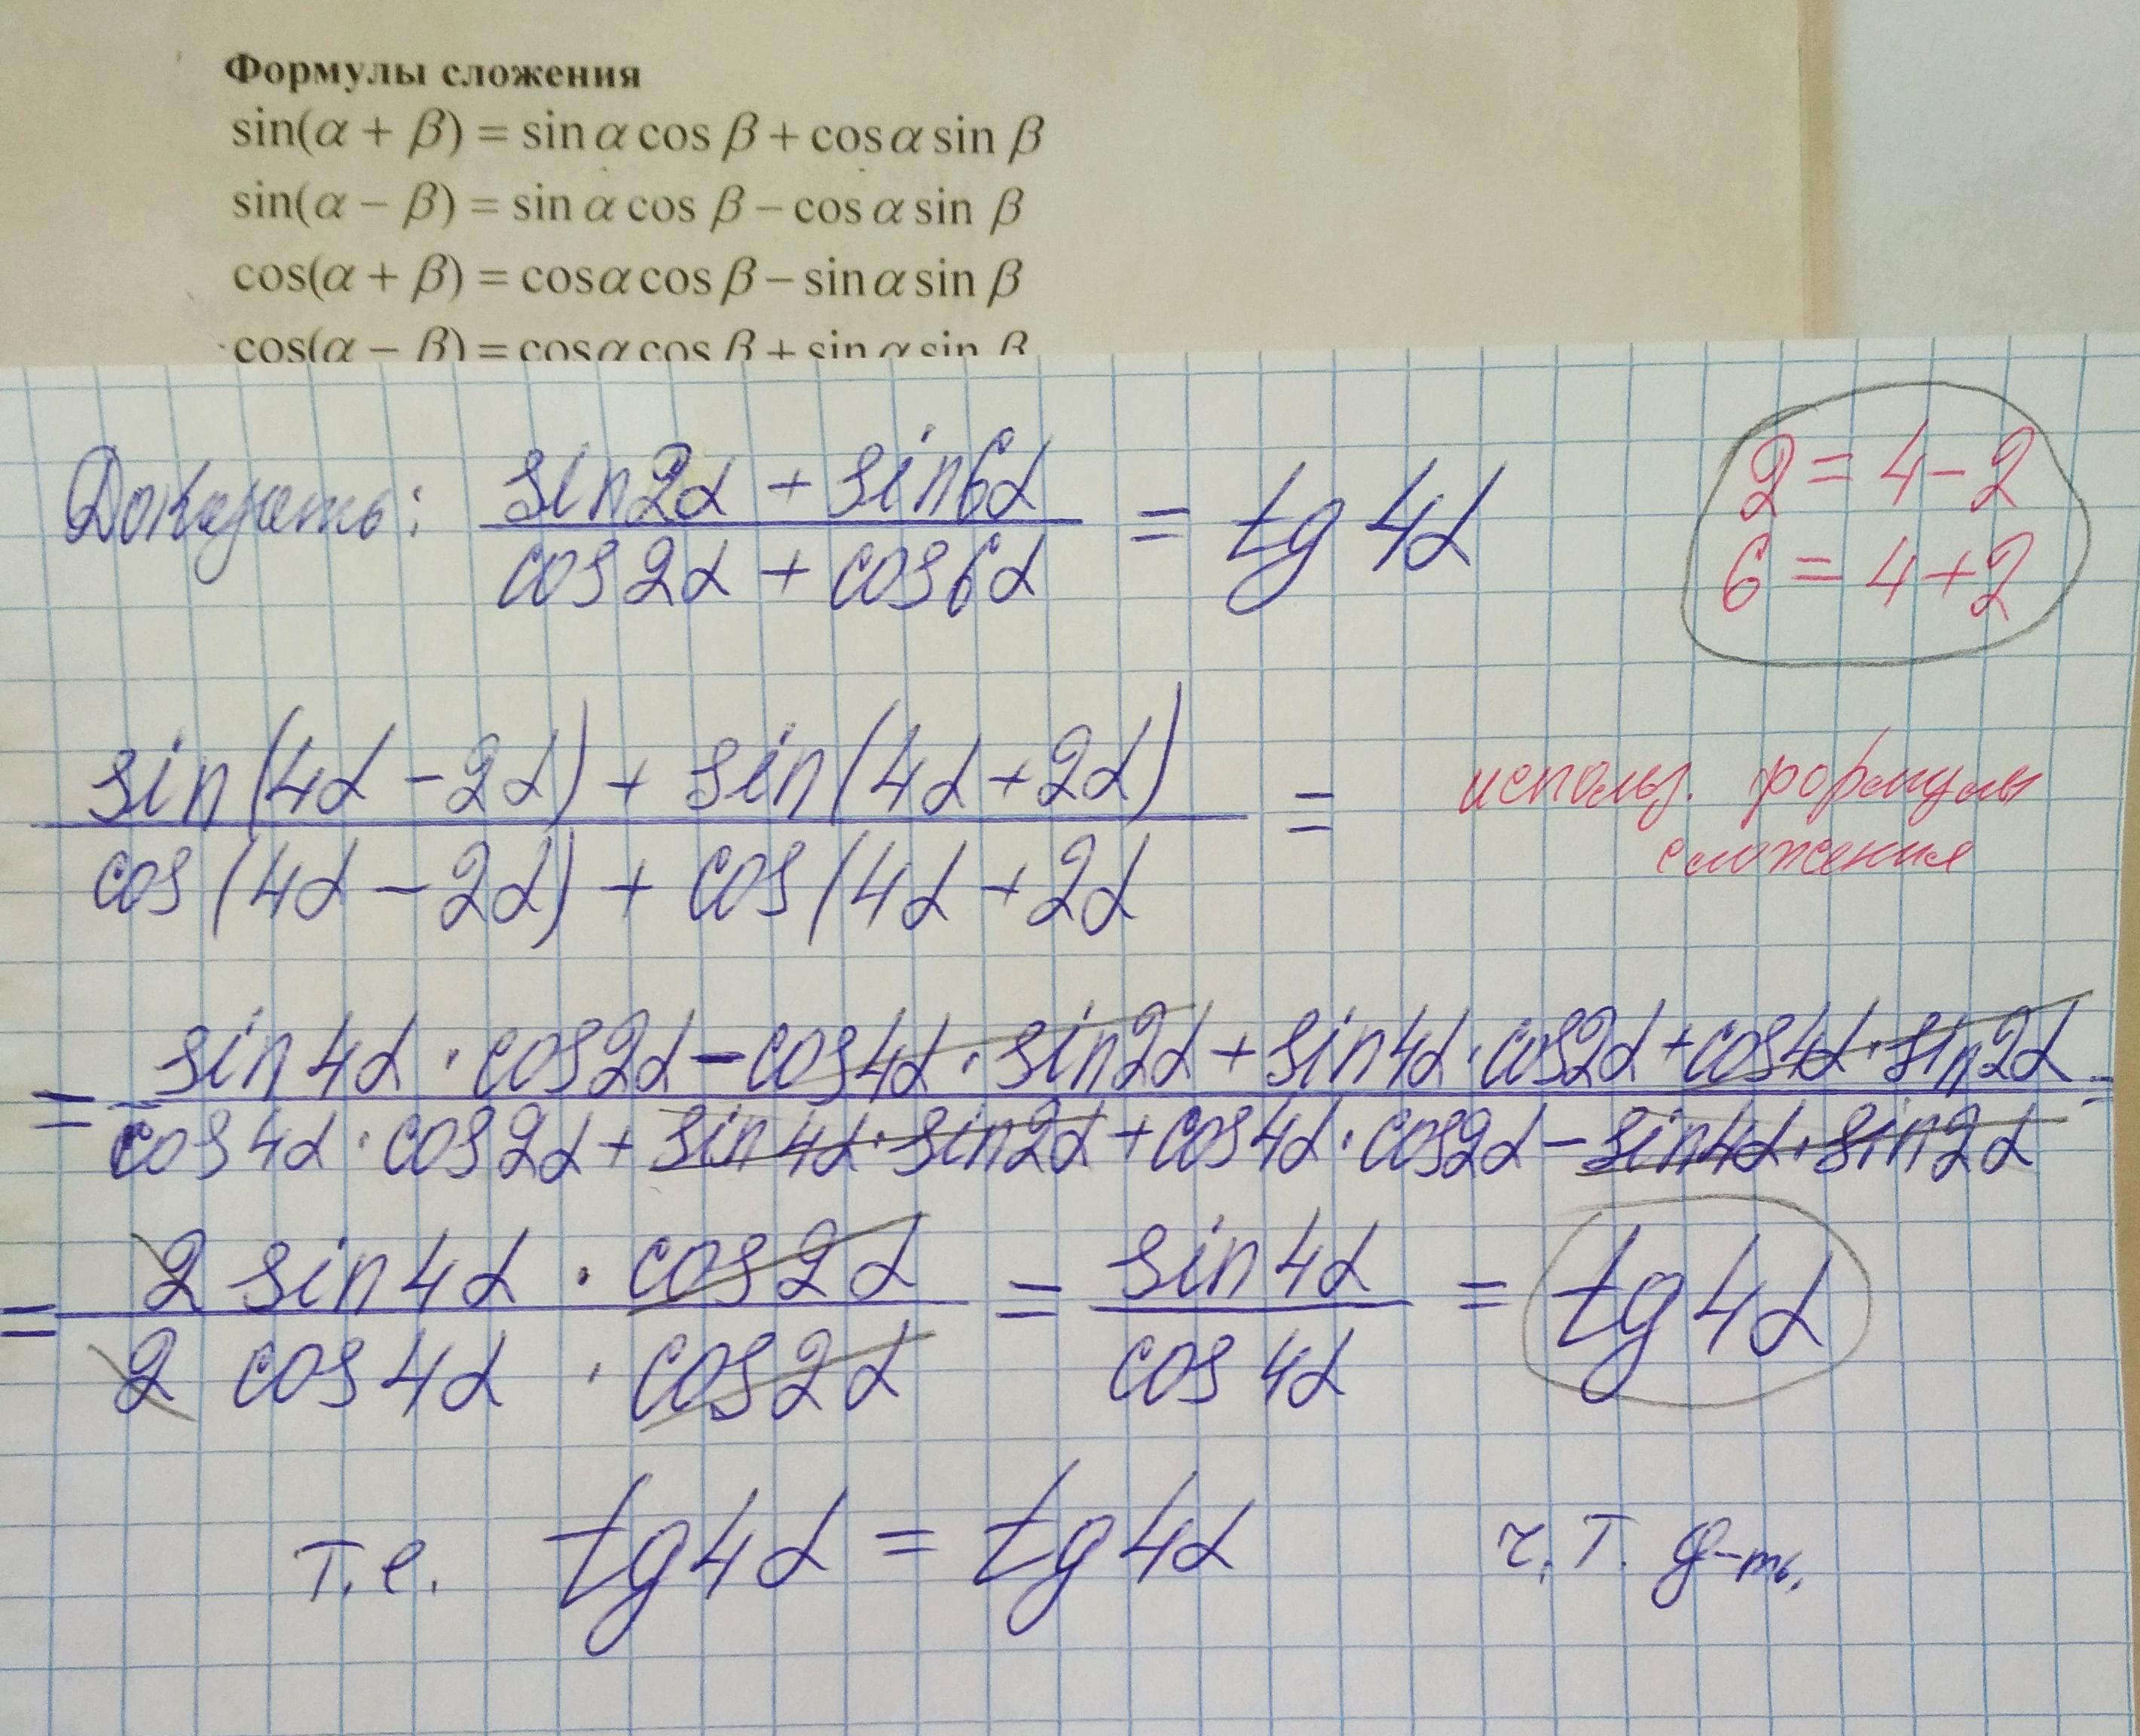 Формулы сложения
sin(α + β) = sin α cos β + cos α sin β
sin(α − β) = sin α cos β − cos α sin β
cos(α + β) = cos α cos β − sin α sin β
cos(α − β) = cos α cos β + sin α sin β
Доказать: (sin2α + sin6α)/(cos2α + cos6α) = tg 4α
2 = 4 − 2
6 = 4 + 2
sin(4α − 2α) + sin(4α + 2α)
cos(4α − 2α) + cos(4α + 2α =
использ. формулы
сложения
= sin4α · cos2α − cos4α · sin2α + sin4α · cos2α + cos4α · sin2α
cos4α · cos2α + sin4α · sin2α + cos4α · cos2α − sin4α · sin2α =
= (2 sin4α · cos2α)/(2 cos4α · cos2α) = (sin4α)/(cos4α) = tg4α
т.е. tg4α = tg4α ч.т. д-ть.